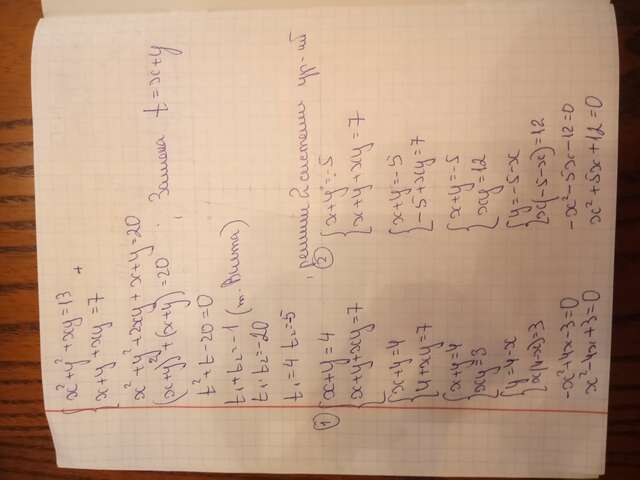 {x²+y²+xy=13
{x+y+xy=7 +
x²+y²+2xy+x+y=20
(x+y)²+(x+y)=20, Замена t=x+y
t²+t-20=0
t₁+t₂=-1 (т. Виета)
t₁·t₂=-20
t₁=4 t₂=-5, решим 2 системы ур-ий
① {x+y=4
{x+y+xy=7
{x+y=4
{4+xy=7
{x+y=4
{xy=3
{y=4-x
{x(4-x)=3
-x²+4x-3=0
x²-4x+3=0
② {x+y=-5
{x+y+xy=7
{x+y=-5
{-5+xy=7
{x+y=-5
{xy=12
{y=-5-x
{x(-5-x)=12
-x²-5x-12=0
x²+5x+12=0